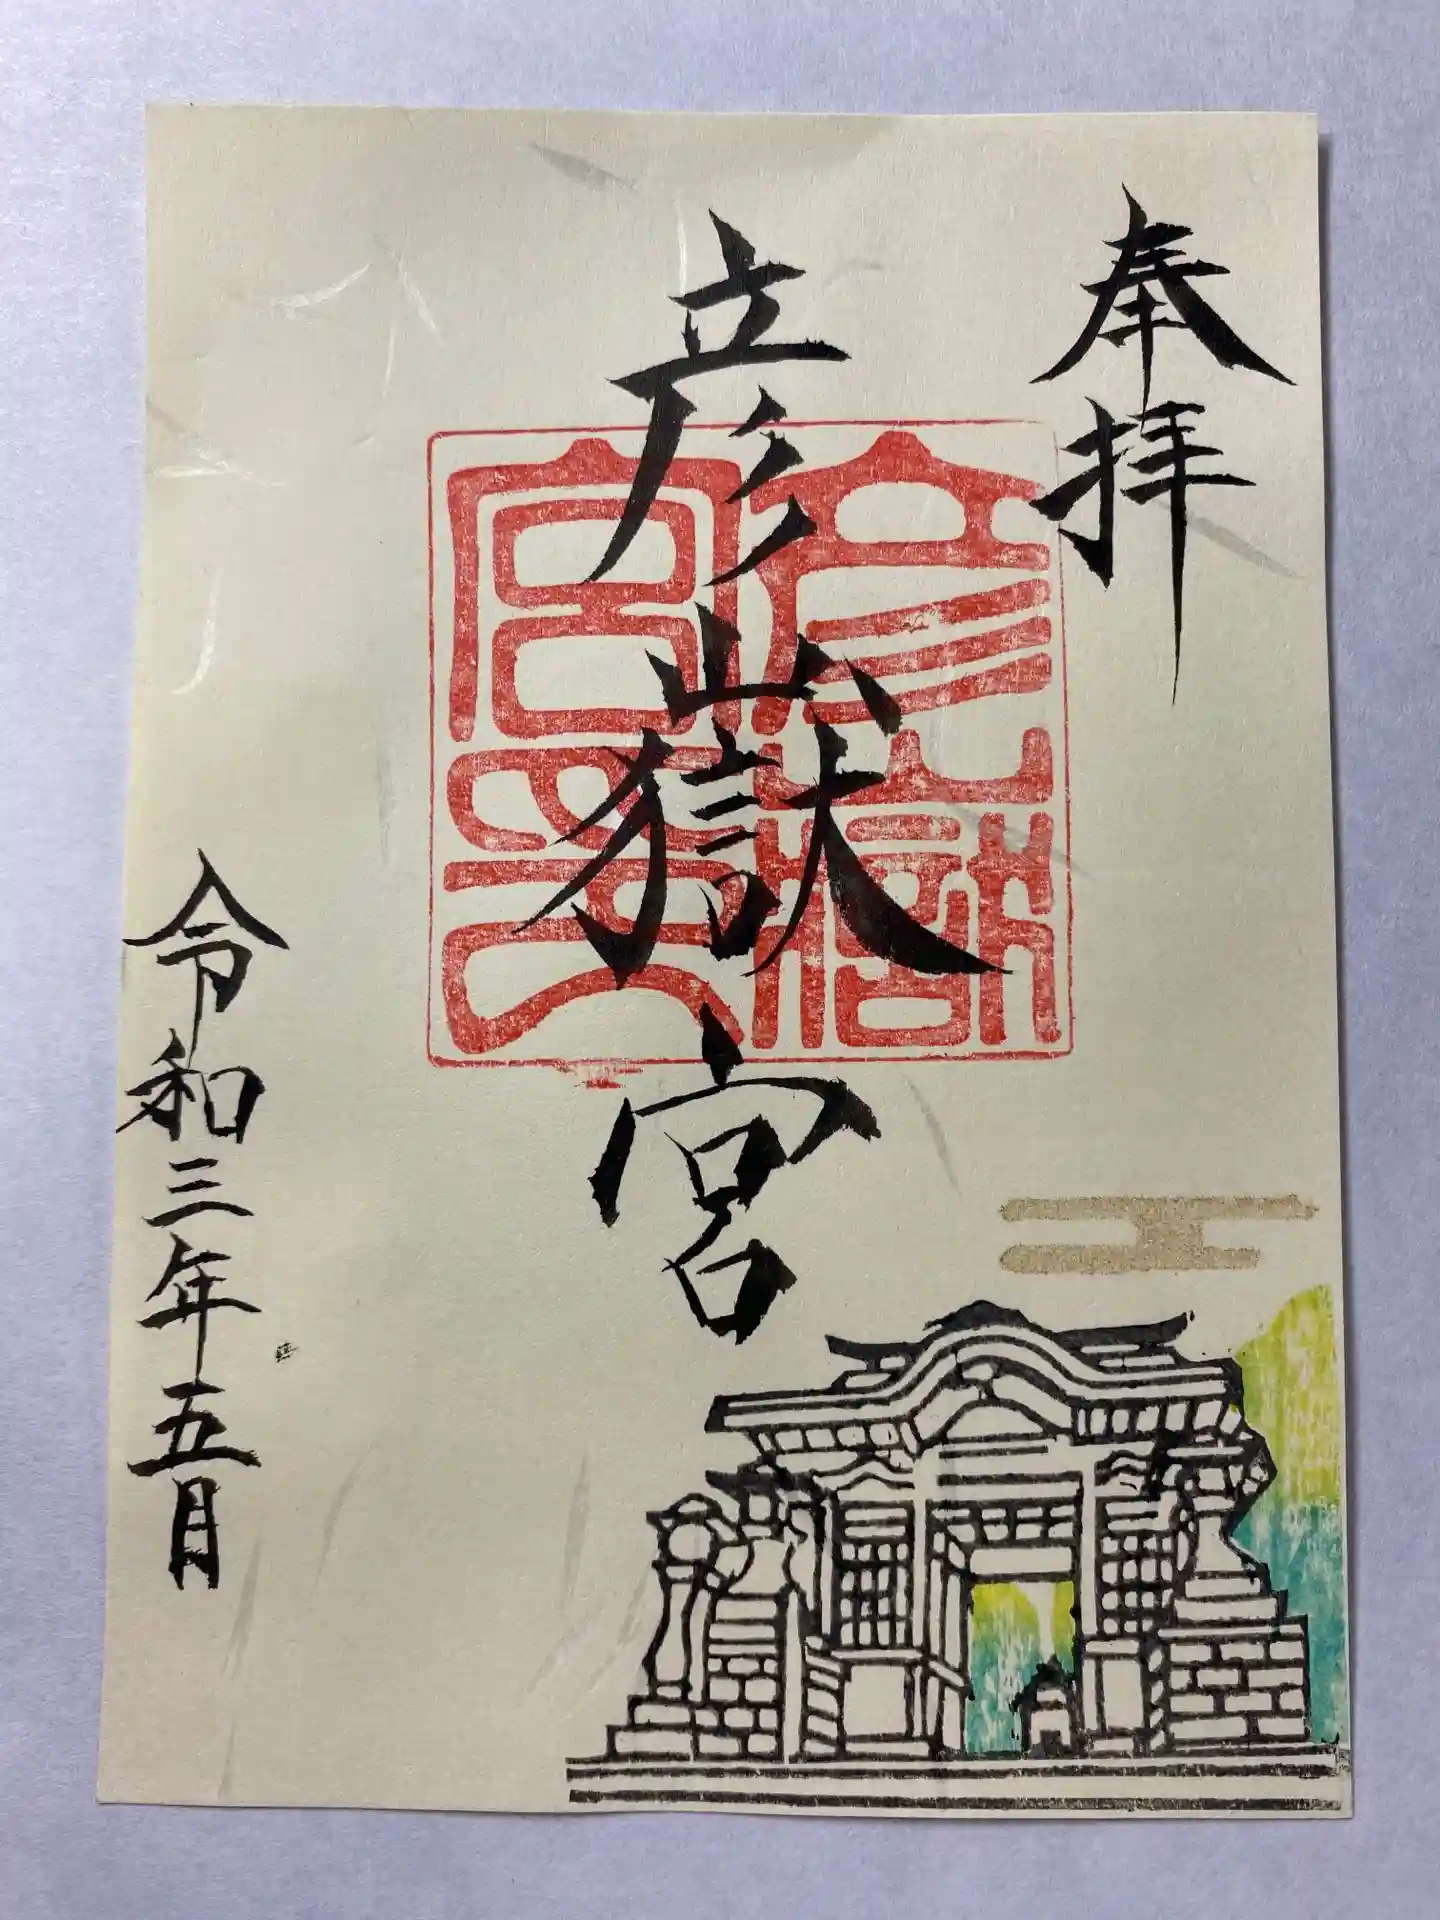 奉拝
彦嶽宮
彦嶽
宮印
令和三年五月